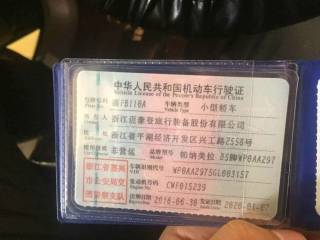 中华人民共和国机动车行驶证
Vehicle License of the People's Republic of China
号牌号码 浙FB110A 车辆类型 小型轿车
Vehicle Type
所有人 浙江 泰登旅行装备股份有限公司
住址 浙江省平湖经济开发区兴工路2558号
使用性质 非营运 品牌型号 帕纳美拉 牌WP0AA297
浙江省嘉兴 车辆识别代号 WP0AA297
VIN
市公安局交 发动机号码 CWF015239
Engine No.
通警察支队 注册日期 2016-06-30 发证日期